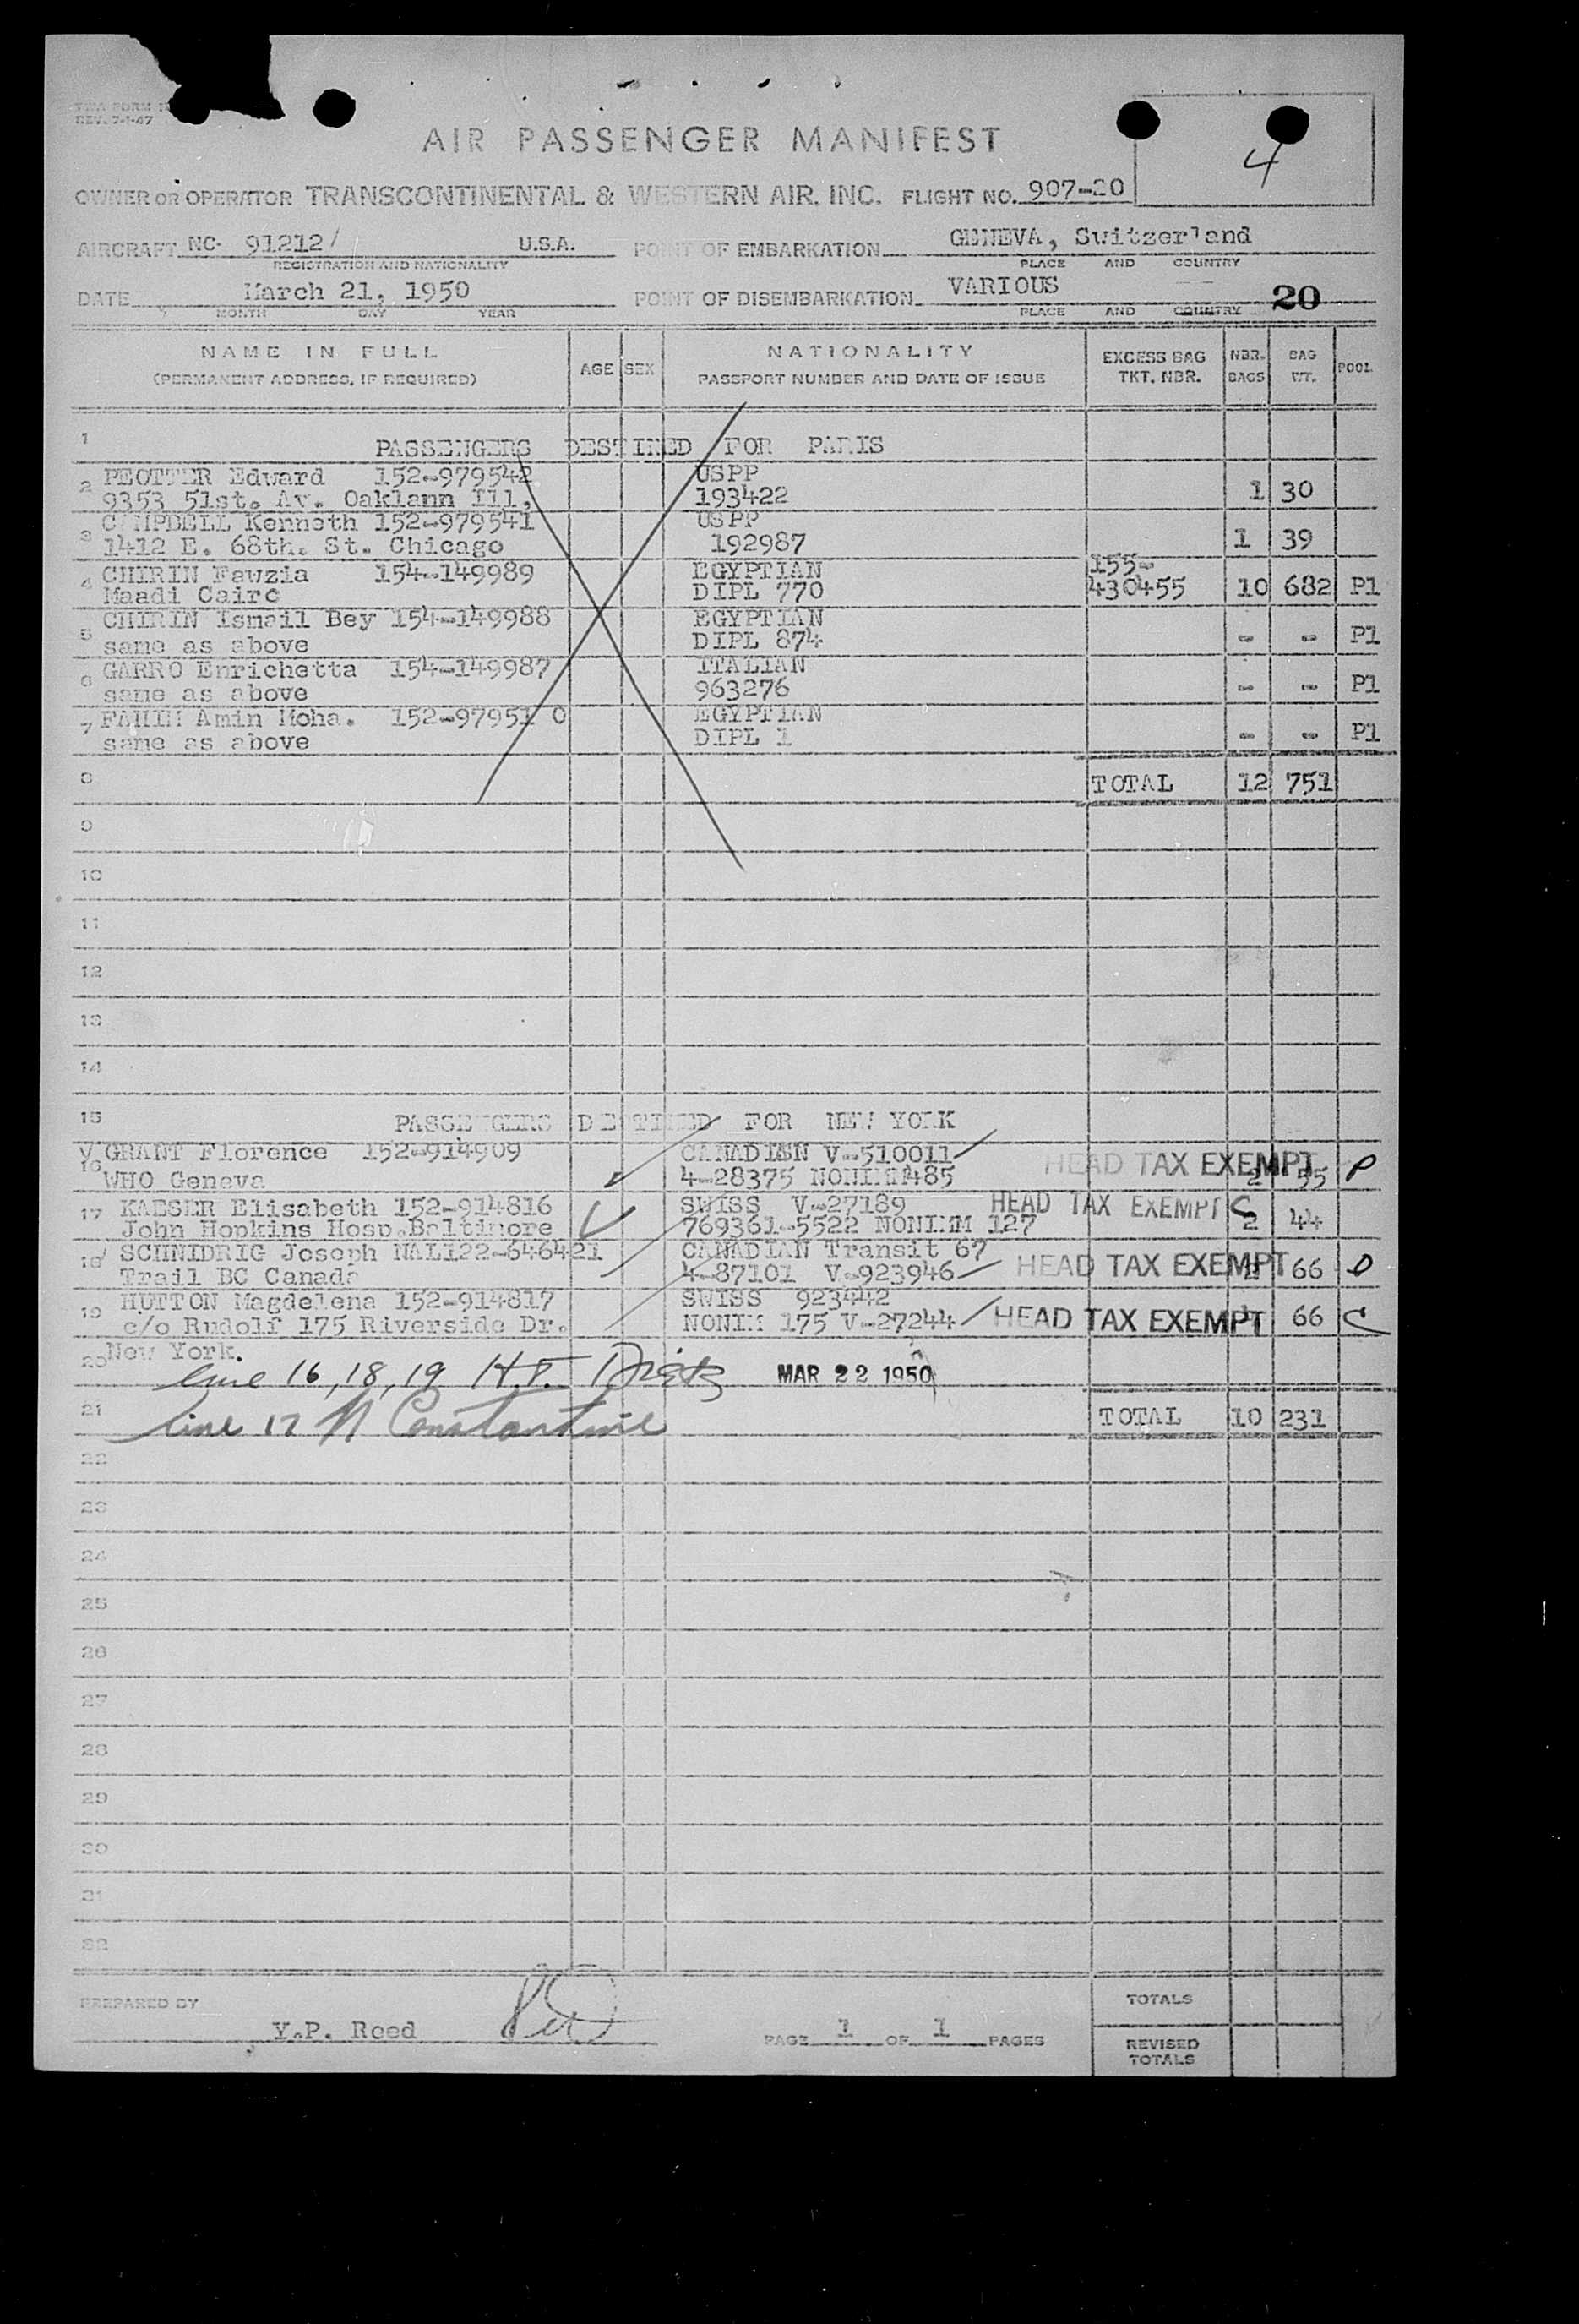 TWA FORM
REV. 7-1-47
4
AIR PASSENGER MANIFEST
OWNER OR OPERATOR TRANSCONTINENTAL & WESTERN AIR, INC. FLIGHT NO. 907-20
AIRCRAFT NC- 91212/ U.S.A. POINT OF EMBARKATION GENEVA, Switzerland
REGISTRATION AND NATIONALITY PLACE AND COUNTRY
DATE March 21, 1950 POINT OF DISEMBARKATION VARIOUS 20
MONTH DAY YEAR PLACE AND COUNTRY
NAME IN FULL AGE SEX NATIONALITY EXCESS BAG NBR. BAG POOL
(PERMANENT ADDRESS, IF REQUIRED) PASSPORT NUMBER AND DATE OF ISSUE TKT. NBR. BAGS WT.
1 PASSENGERS DESTINED FOR PARIS
2 PEOTTER Edward 152-979542 USPP
9353 51st. Av. Oaklann Ill, 193422 1 30
3 CAMPBELL Kenneth 152-979541 USPP
1412 E. 68th. St. Chicago 192987 1 39
4 CHIRIN Fawzia 154-149989 EGYPTIAN 155-
Maadi Cairo DIPL 770 430455 10 682 P1
5 CHIRIN Ismail Bey 154-149988 EGYPTIAN
same as above DIPL 874 - - P1
6 GARRO Enrichetta 154-149987 ITALIAN
same as above 963276 - - P1
7 FAHIM Amin Moha. 152-97951 0 EGYPTIAN
same as above DIPL 1 - - P1
8 TOTAL 12 751
9
10
11
12
13
14
15 PASSENGERS DESTINED FOR NEW YORK
16 GRANT Florence 152-914909 CANADIAN V-510011
WHO Geneva 4-28375 NONIMM485 HEAD TAX EXEMPT 2 55 P
17 KAESER Elisabeth 152-914816 SWISS V-27189 HEAD TAX EXEMPT C
John Hopkins Hosp.Baltimore 769361-5522 NONIMM 127 2 44
18 SCHNIDRIG Joseph NAL122-646421 CANADIAN Transit 67
Trail BC Canada 4-87101 V-923946 HEAD TAX EXEMPT 66
19 HUTTON Magdelena 152-914817 SWISS 923442
c/o Rudolf 175 Riverside Dr. NONIM 175 V-27244 HEAD TAX EXEMPT 66 C
20 New York.
line 16, 18, 19 H.T. MAR 22 1950
21 line 17 N Constantine TOTAL 10 231
22
23
24
25
26
27
28
29
30
31
32
PREPARED BY TOTALS
V.P. Reed PAGE 1 OF 1 PAGES REVISED
TOTALS